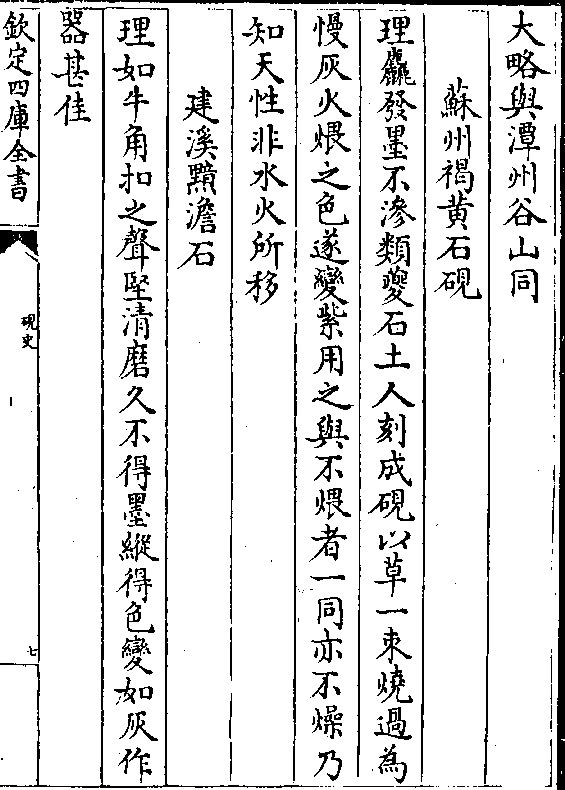 大略與潭州谷山同
蘇州褐黄石硯
理麤發墨不滲類夔石土人刻成硯以草一束燒過為
慢灰火煨之色遂變紫用之與不煨者一同亦不燥乃
知天性非水火所移
建溪黯澹石
理如牛角扣之聲堅清磨久不得墨縱得色變如灰作
器甚佳
欽定四庫全書
硯史
七